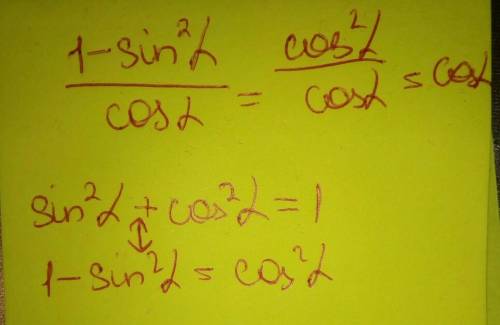 (1-sin²α)/cosα = cos²α/cosα = cosα
sin²α + cos²α = 1
↕
1-sin²α = cos²α